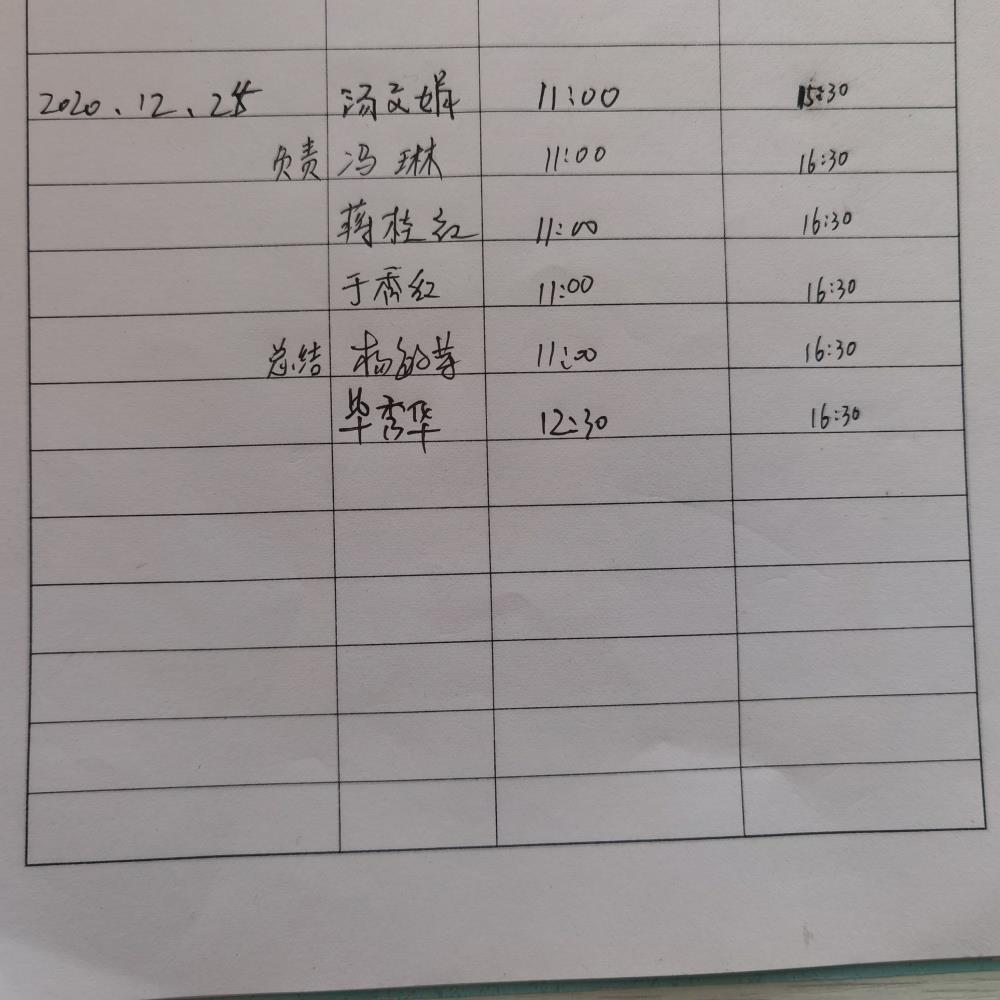 2020.12.25 汤文娟 11:00 15:30
负责 冯琳 11:00 16:30
蒋桂红 11:00 16:30
于秀红 11:00 16:30
总结 杨 11:00 16:30
毕秀华 12:30 16:30